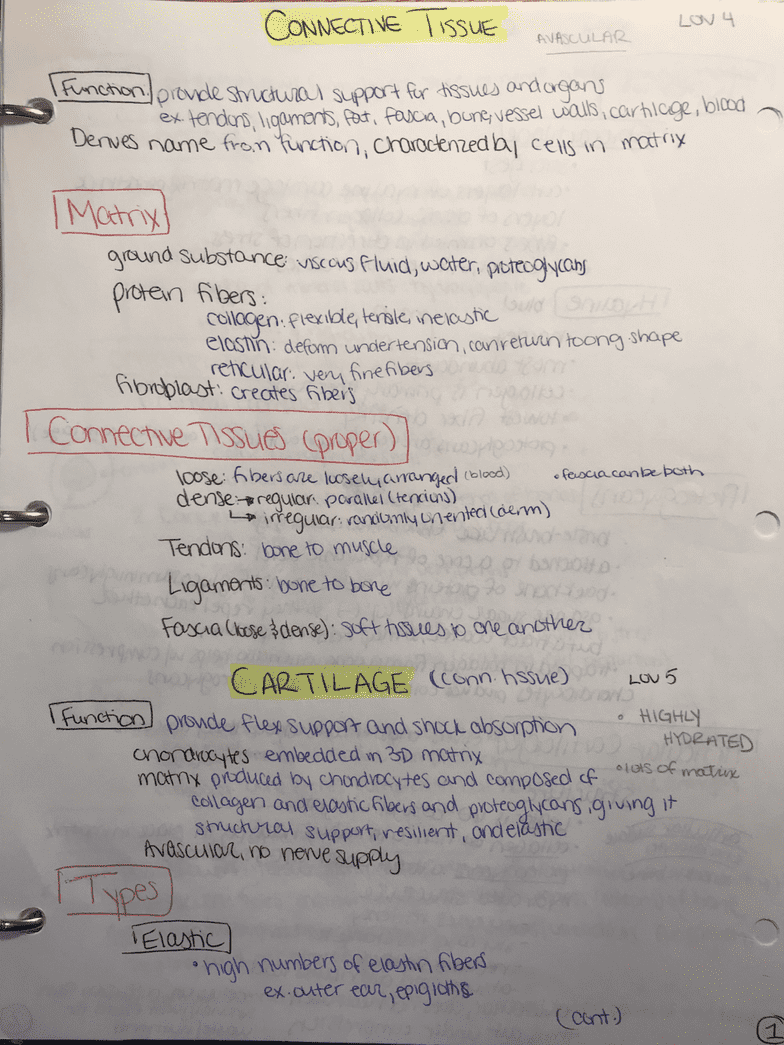 CONNECTIVE TISSUE
AVASCULAR
LOV 4
Function provide structural support for tissues and organs
ex tendons, ligaments, fat, fascia, bone, vessel walls, cartilage, blood
Derives name from function, characterized by cells in matrix
Matrix
ground substance: viscous fluid, water, proteoglycans
protein fibers:
collagen: flexible, tensile, inelastic
elastin: deform under tension, can return to orig shape
reticular: very fine fibers
fibroplast: creates fibers
Connective Tissues (proper)
loose: fibers are loosely arranged (blood) • fascia can be both
dense → regular: parallel (tendons)
↳ irregular: randomly oriented (derm)
Tendons: bone to muscle
Ligaments: bone to bone
Fascia (loose & dense): soft tissues to one another
CARTILAGE (conn. tissue) LOV 5
Function provide flex support and shock absorption
• HIGHLY HYDRATED
chondrocytes embedded in 3D matrix
• lots of matrix
matrix produced by chondrocytes and composed of
collagen and elastic fibers and proteoglycans, giving it
structural support, resilient, and elastic
Avascular, no nerve supply
Types
Elastic
• high numbers of elastin fibers
ex. outer ear,
(cont.)
1